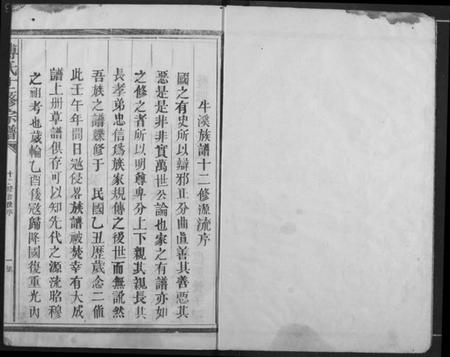 牛溪族譜十二修源流序
國之有史所以辯邪正分曲直善其善惡其
惡是是非非實萬世公論也家之有譜亦如
之修之者所以明尊卑分上下親其親長其
長孝弟忠信爲族家規傳之後世而無訛然
吾族之譜疊修于 民國乙丑歷歲念二值
此壬午年間日寇侵畧族譜被焚幸有大成
譜上册草譜俱存可以知先代之源流昭穆
之祖考也歲輪乙酉倭寇歸降國復重光內
氏 修宗譜
十二修